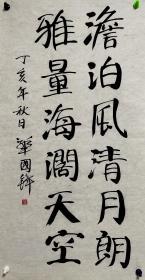 澹泊風清月朗
雅量海濶天空
丁亥年秋日
國鋒